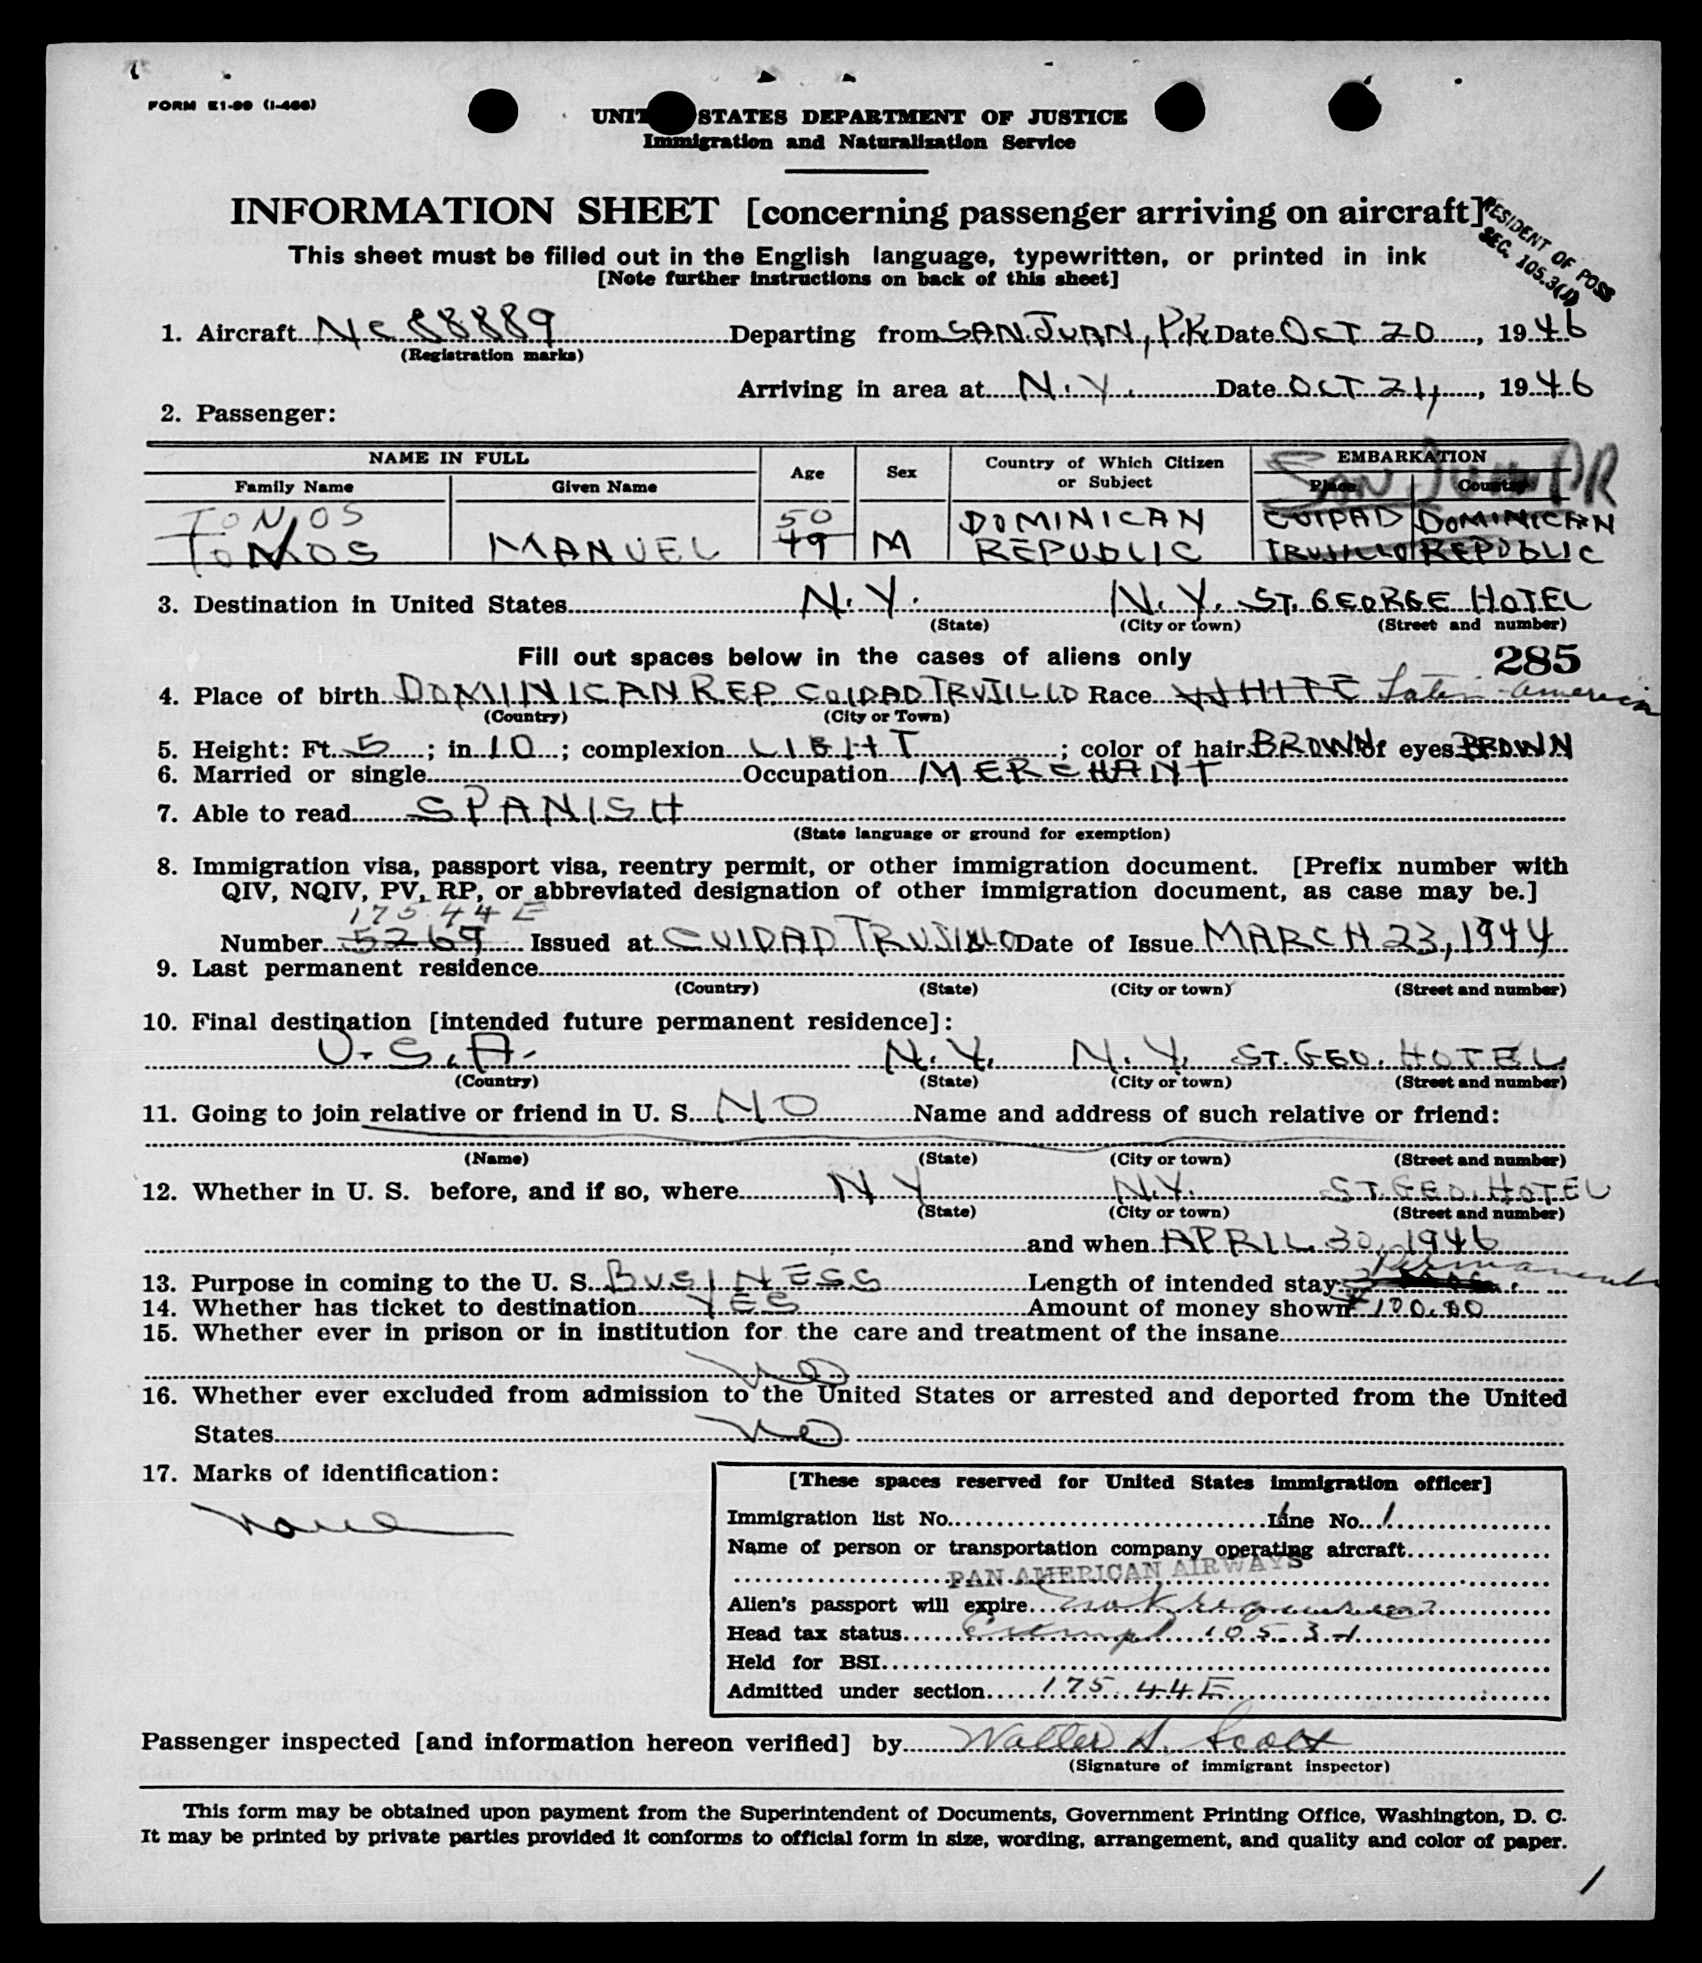 FORM E1-99 (I-466)
UNITED STATES DEPARTMENT OF JUSTICE
Immigration and Naturalization Service
INFORMATION SHEET [concerning passenger arriving on aircraft]
RESIDENT OF POSS
SEC. 105.3(J)
This sheet must be filled out in the English language, typewritten, or printed in ink
[Note further instructions on back of this sheet]
1. Aircraft NC 88889 Departing from SAN JUAN, P.R. Date OCT 20, 1946
(Registration marks)
Arriving in area at N.Y. Date OCT 21, 1946
2. Passenger:
NAME IN FULL Age Sex Country of Which Citizen or Subject EMBARKATION
Family Name Given Name Place Country
SAN JUAN PR
TONOS 50 DOMINICAN CUIDAD DOMINICAN
TOMOS MANUEL 49 M REPUBLIC TRUJILLO REPUBLIC
3. Destination in United States N.Y. N.Y. ST. GEORGE HOTEL
(State) (City or town) (Street and number)
Fill out spaces below in the cases of aliens only 285
4. Place of birth DOMINICAN REP. CUIDAD TRUJILLO Race WHITE Latin-American
(Country) (City or Town)
5. Height: Ft. 5; in 10; complexion LIGHT; color of hair BROWN of eyes BROWN
6. Married or single Occupation MERCHANT
7. Able to read SPANISH
(State language or ground for exemption)
8. Immigration visa, passport visa, reentry permit, or other immigration document. [Prefix number with
QIV, NQIV, PV, RP, or abbreviated designation of other immigration document, as case may be.]
175.44E
Number 5269 Issued at CUIDAD TRUJILLO Date of Issue MARCH 23, 1944
9. Last permanent residence
(Country) (State) (City or town) (Street and number)
10. Final destination [intended future permanent residence]:
U.S.A. N.Y. N.Y. ST. GEO. HOTEL
(Country) (State) (City or town) (Street and number)
11. Going to join relative or friend in U. S. NO Name and address of such relative or friend:
(Name) (State) (City or town) (Street and number)
12. Whether in U. S. before, and if so, where N Y N.Y. ST. GEO. HOTEL
(State) (City or town) (Street and number)
and when APRIL 30, 1946
Permanent
13. Purpose in coming to the U. S. BUSINESS Length of intended stay
14. Whether has ticket to destination YES Amount of money shown $100.00
15. Whether ever in prison or in institution for the care and treatment of the insane
No
16. Whether ever excluded from admission to the United States or arrested and deported from the United
States No
17. Marks of identification:
None
[These spaces reserved for United States immigration officer]
Immigration list No. Line No. 1
Name of person or transportation company operating aircraft
PAN AMERICAN AIRWAYS
Alien's passport will expire not required
Head tax status Exempt 105.3-1
Held for BSI
Admitted under section 175.44E
Passenger inspected [and information hereon verified] by Walter A. Scott
(Signature of immigrant inspector)
This form may be obtained upon payment from the Superintendent of Documents, Government Printing Office, Washington, D. C.
It may be printed by private parties provided it conforms to official form in size, wording, arrangement, and quality and color of paper.
1